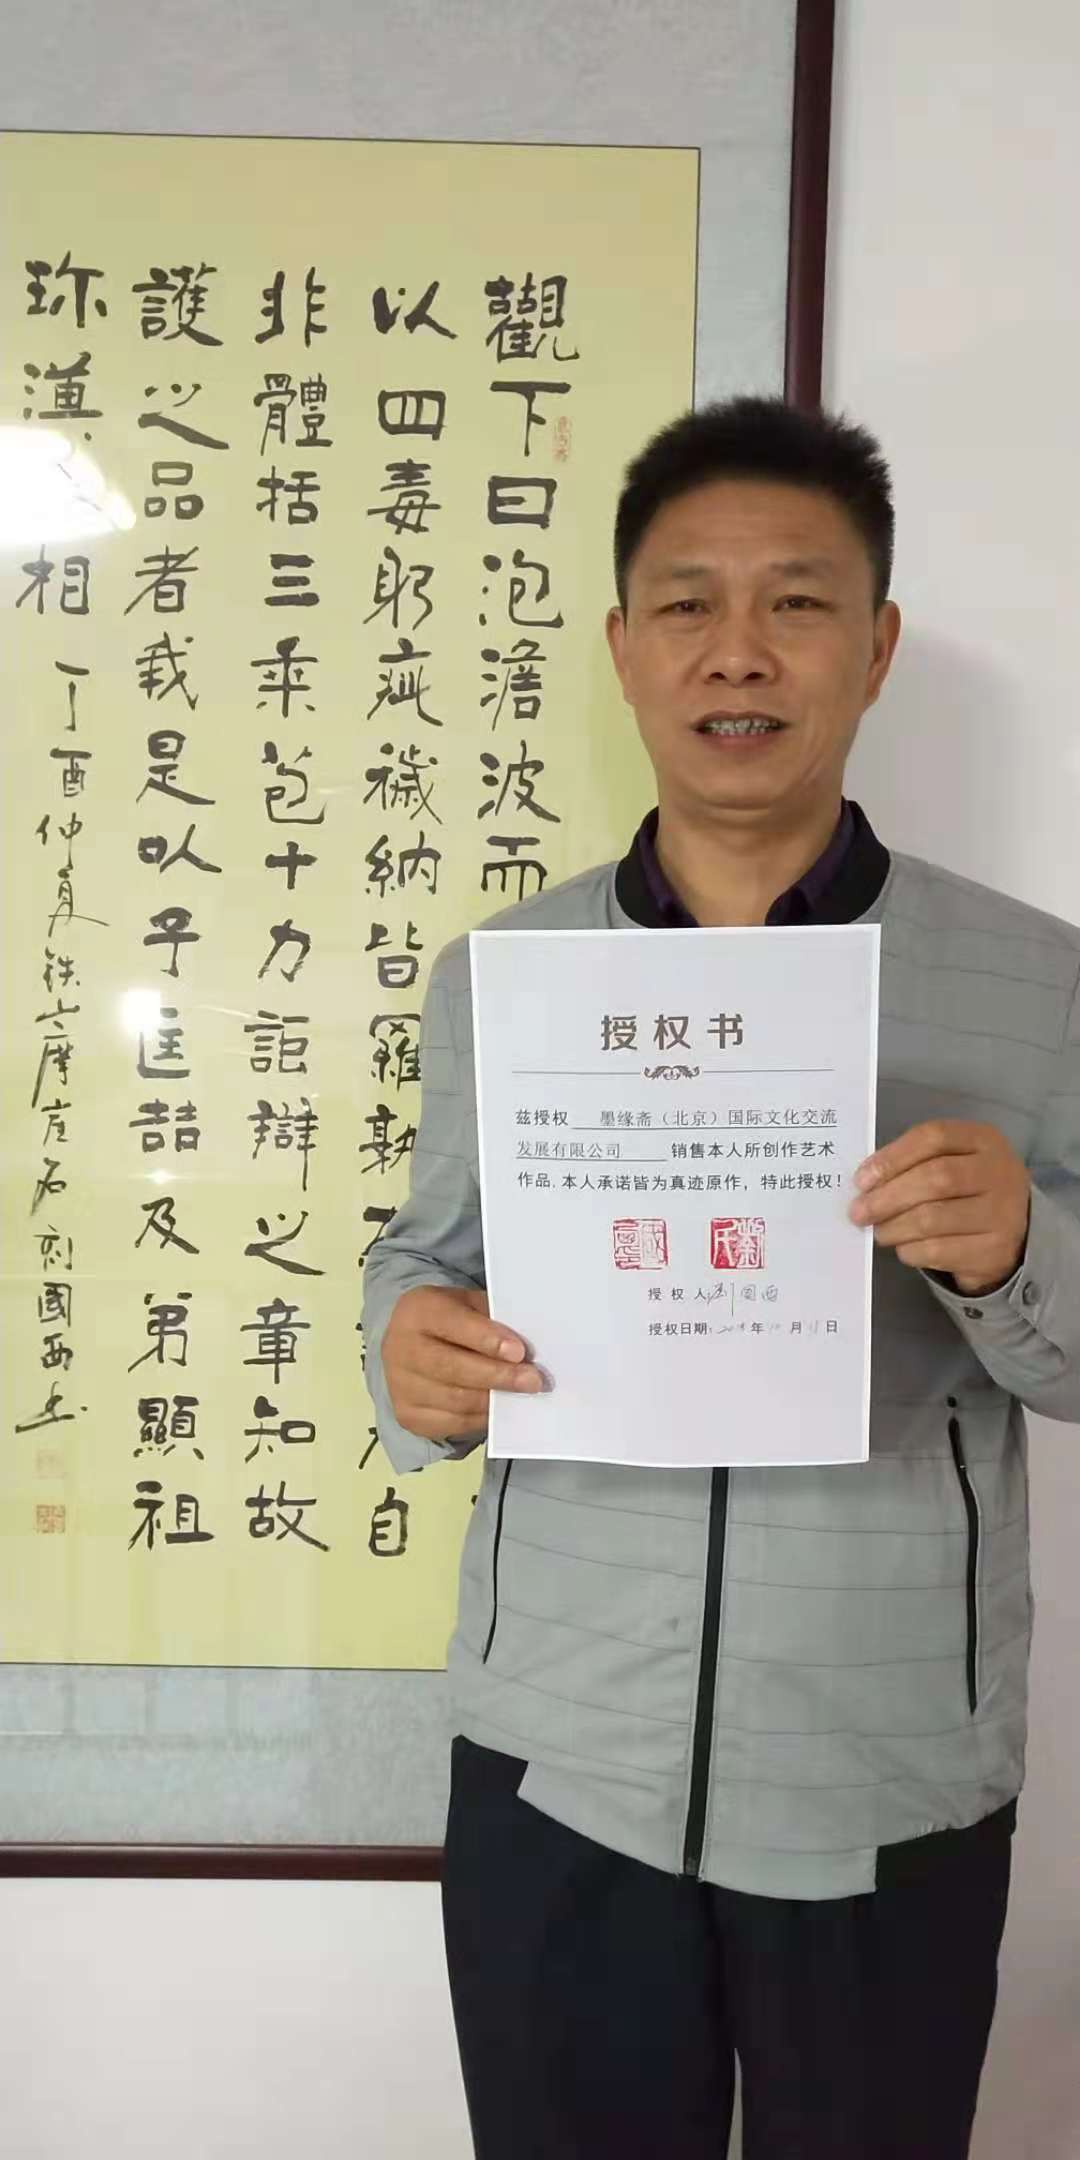 觀下曰泡澹波而
以四毒躬疵穢納皆羅孰
自
非體括三乘苞十力詎辯之章知故
護之品者哉是以予匡喆及弟顯祖
珎漢
相
丁酉仲夏鉄山摩崖石刻國西书
授权书
兹授权 墨缘斋（北京）国际文化交流
发展有限公司 销售本人所创作艺术
作品.本人承诺皆为真迹原作，特此授权！
授权人 刘国西
授权日期: 年 月 日